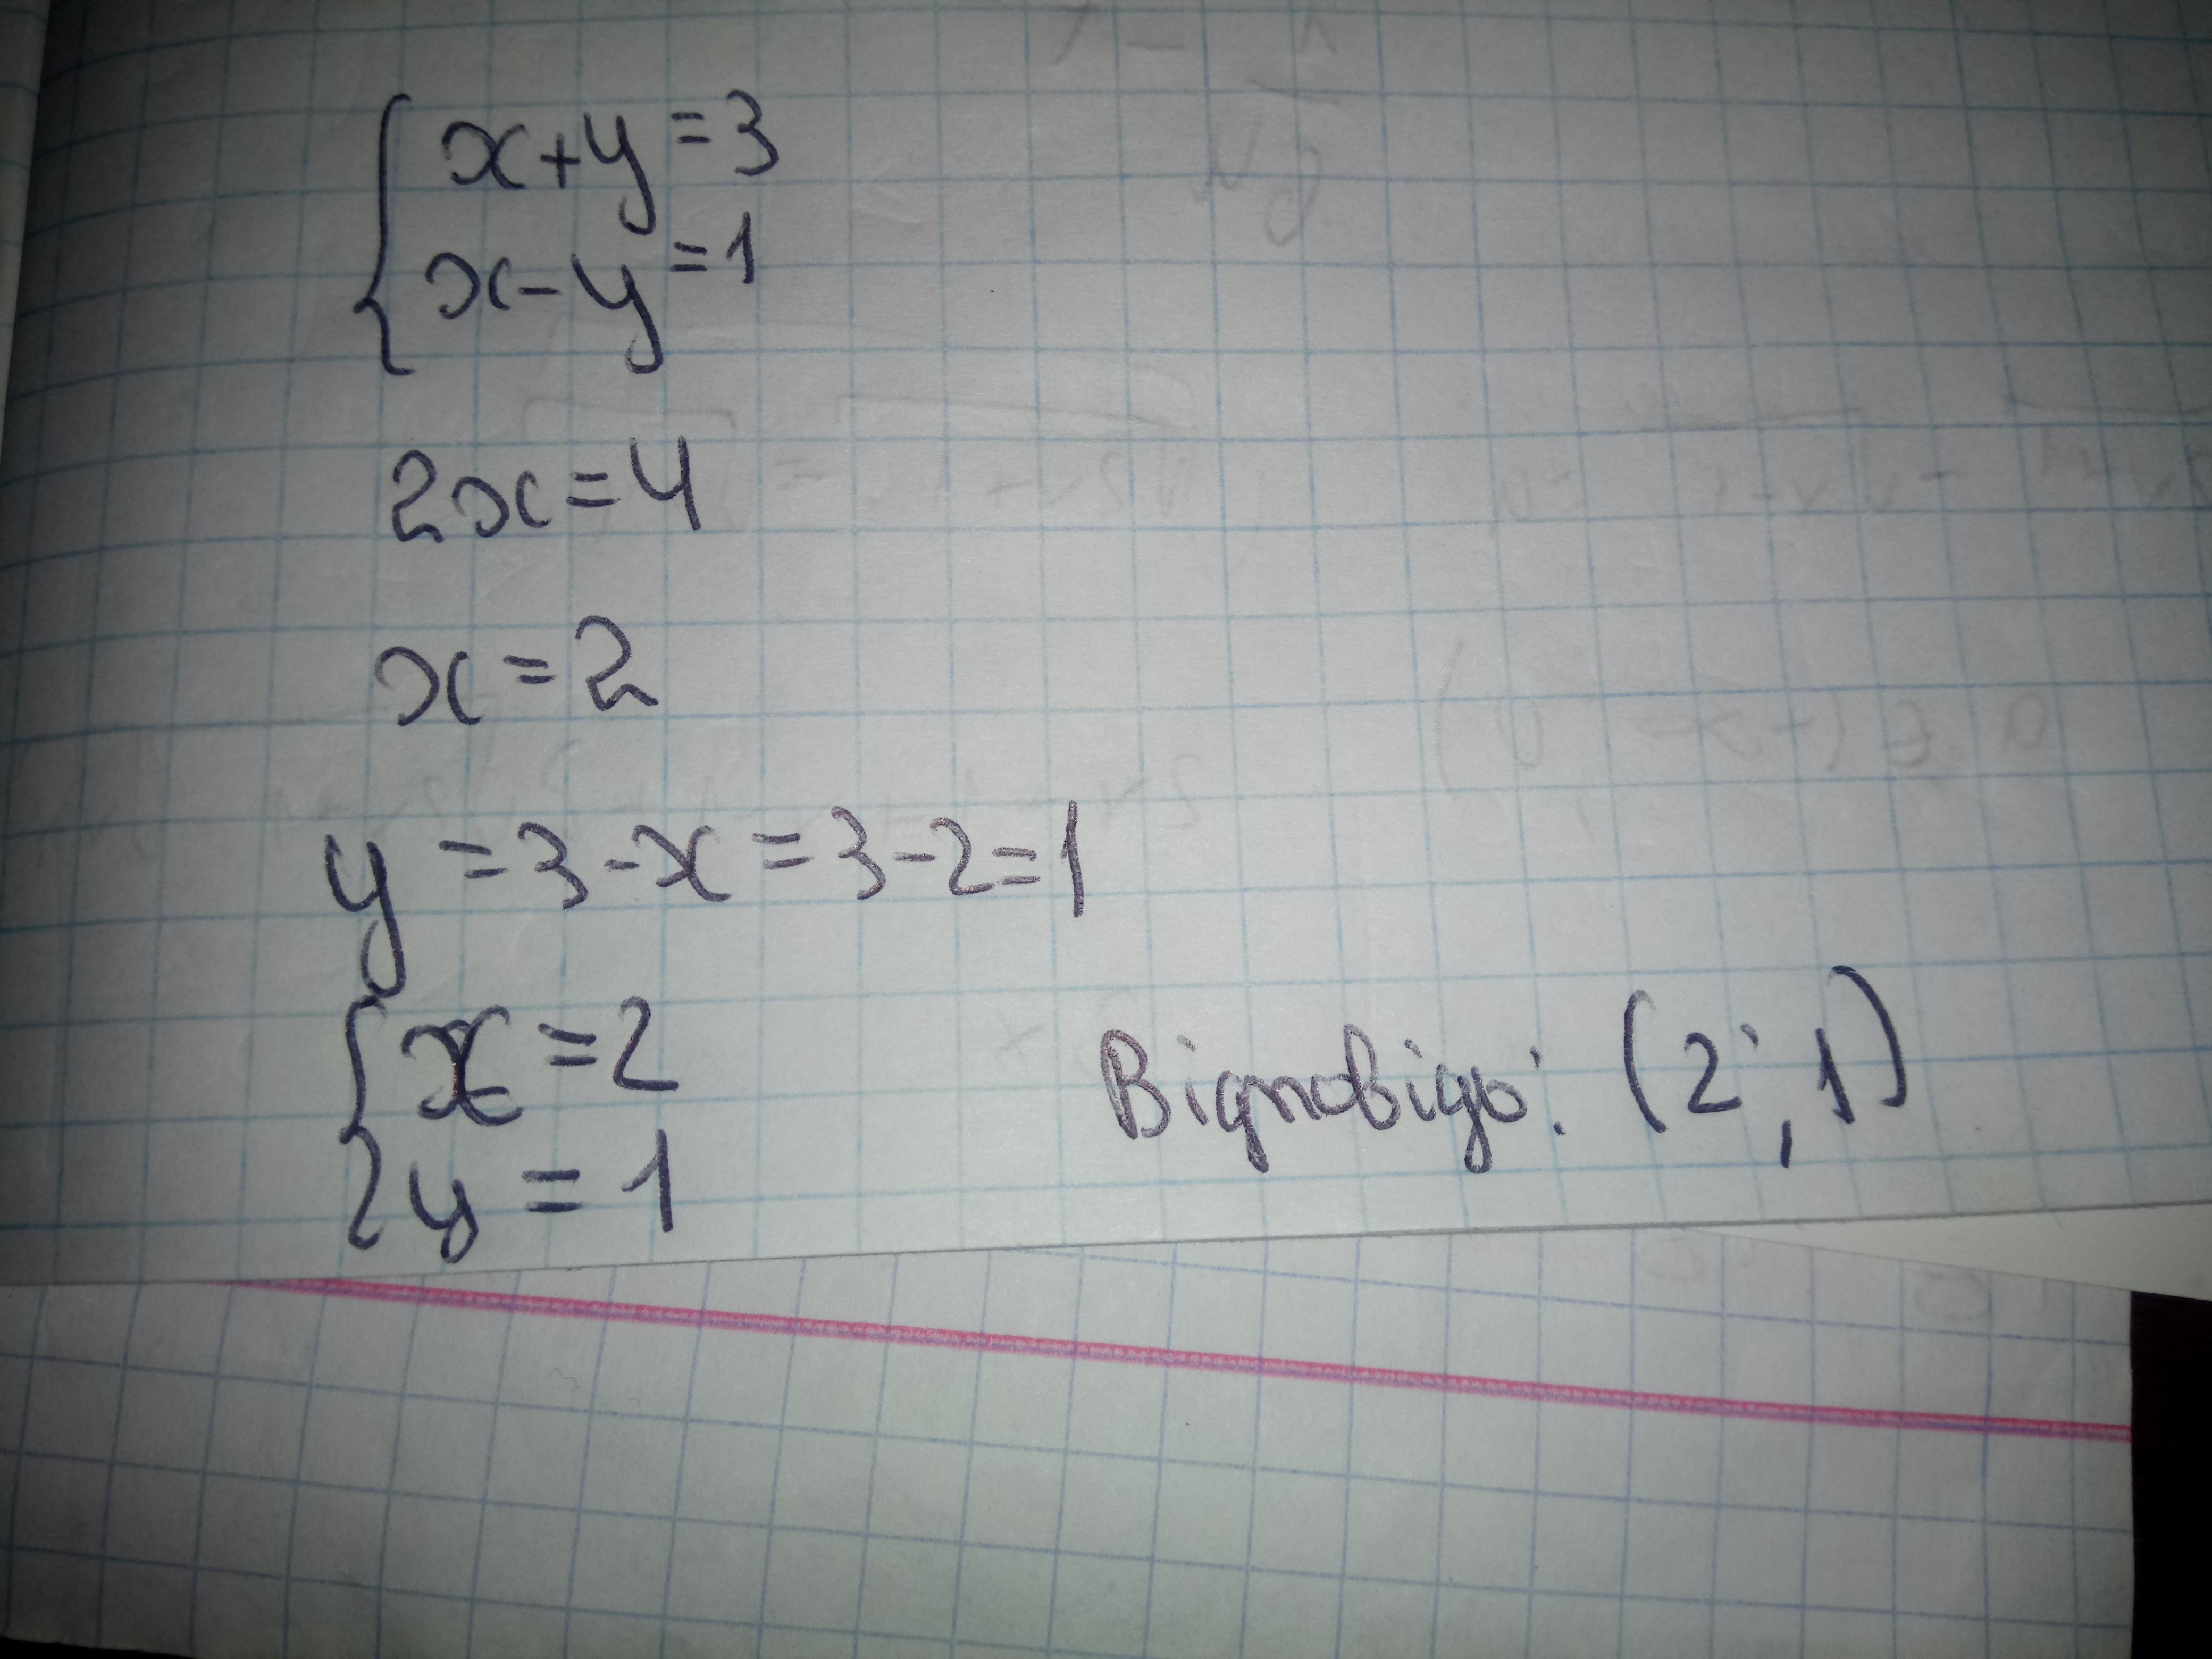 { x+y=3
x-y=1
2x=4
x=2
y=3-x=3-2=1
{ x=2
y=1
Відповідь: (2; 1)